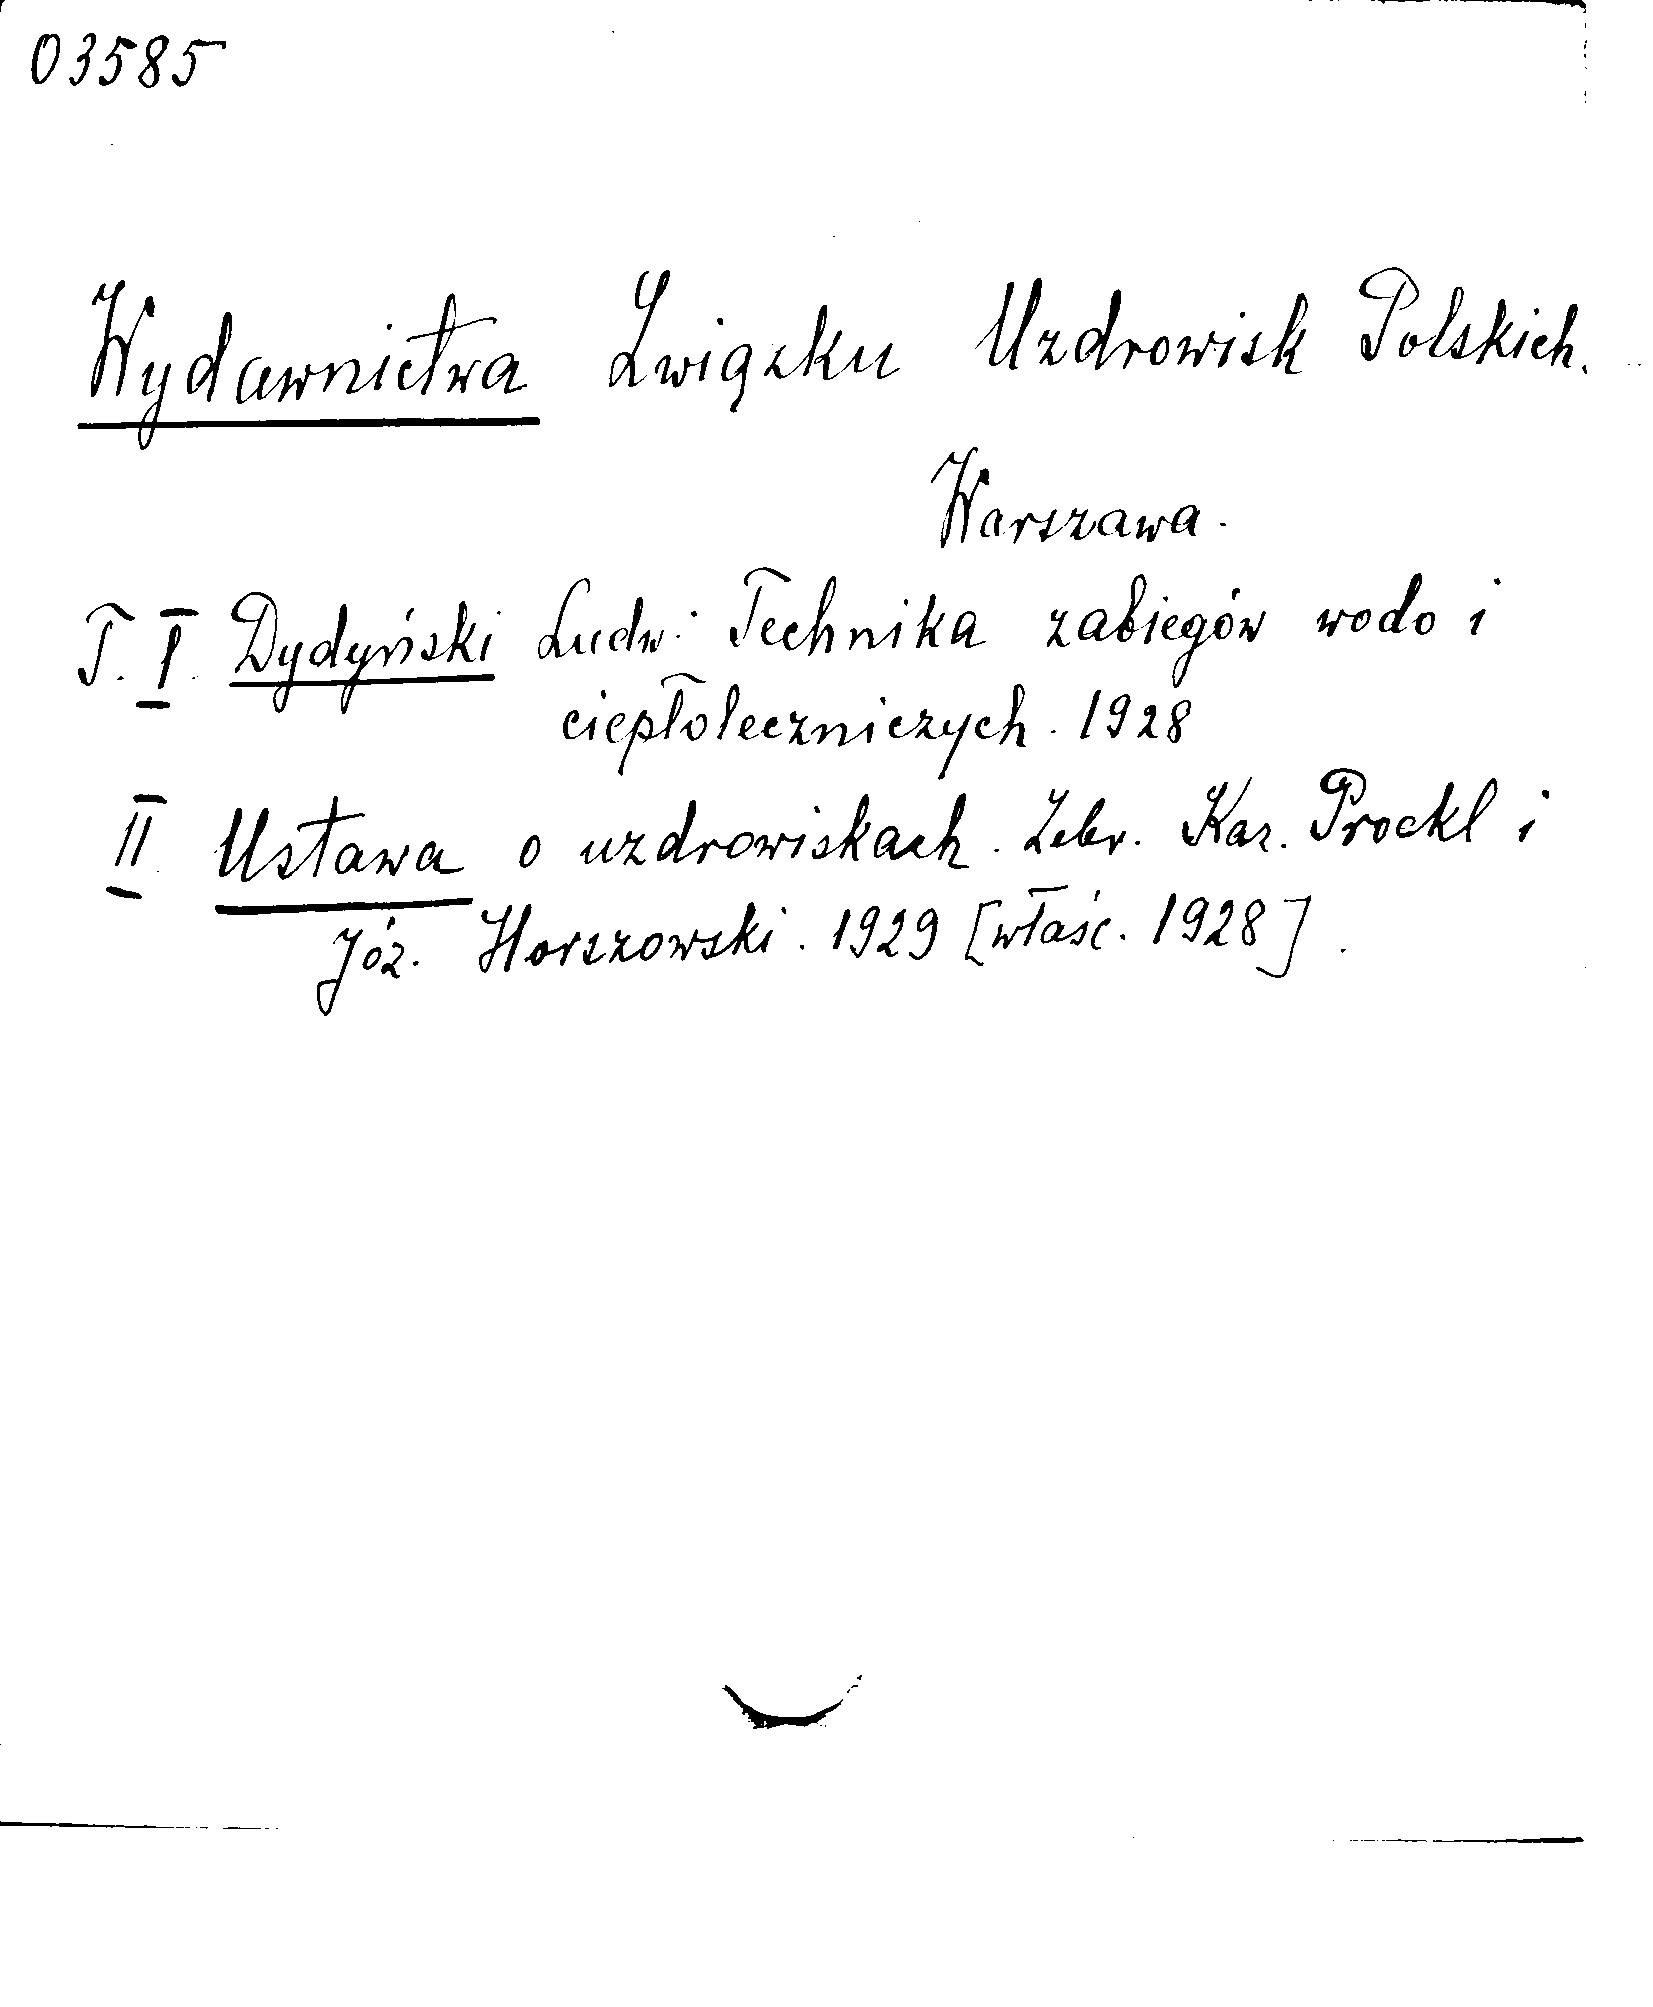 03585
Wydawnictwa Związku Uzdrowisk Polskich.
Warszawa.
T. I. Dydyński Ludw. Technika zabiegów wodo i
ciepłoleczniczych. 1928
II Ustawa o uzdrowiskach. Zebr. Kaz. Prockl i
Józ. Horszowski. 1929 [właśc. 1928].